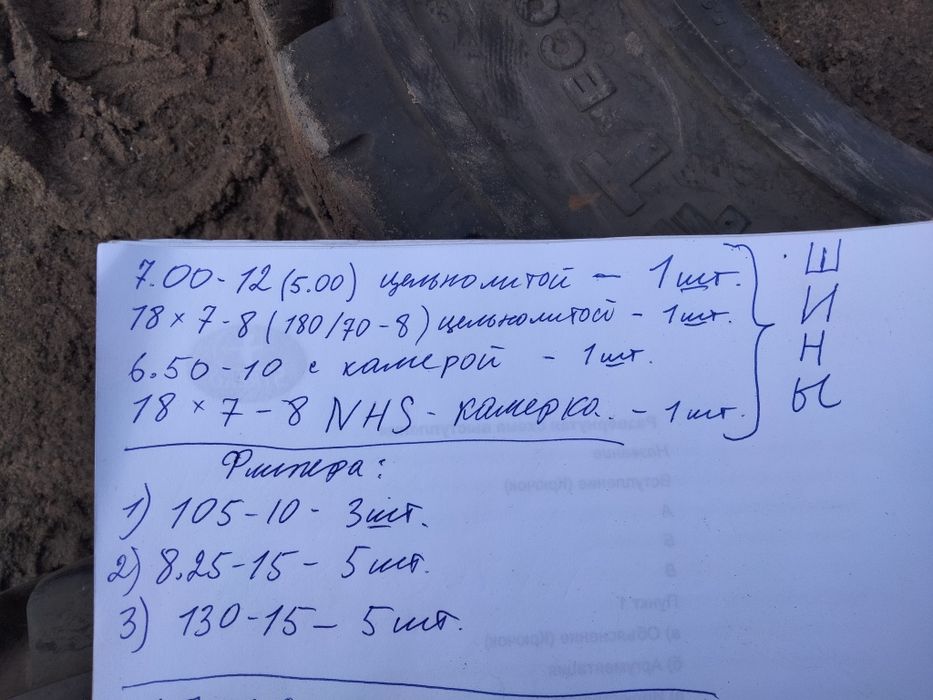 7.00-12 (5.00) цельнолитой - 1 шт.
18×7-8 (180/70-8) цельнолитой - 1 шт.
6.50-10 с камерой - 1 шт.
18×7-8 NHS - камерка. - 1 шт.
ШИНЫ
Флипера:
1) 105-10 - 3 шт.
2) 8.25-15 - 5 шт.
3) 130-15 - 5 шт.